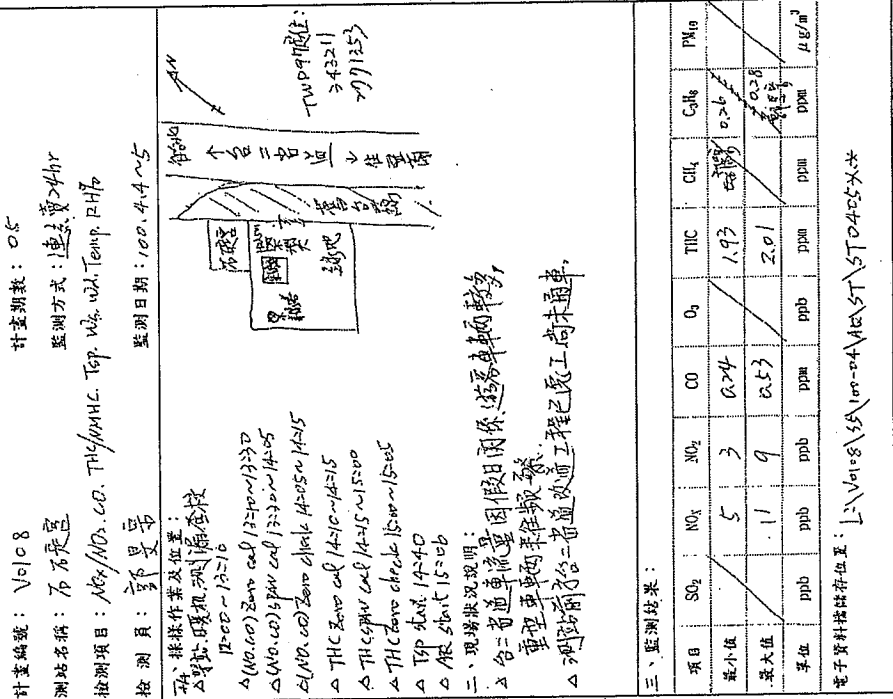 計畫編號：V0108
計畫期數：05
測站名稱：石碇宮
監測方式：連續24hr
檢測項目：NOx/NO2. CO. THC/NMHC. Tsp. Ws. Wd. Temp. RH%
檢測員：
監測日期：100.4.4~5
一、採樣作業及位置：
12:00~13:10
△(NO.CO) Zero cal 13:10~13:30
△(NO.CO) span cal 13:30~14:05
△(NO.CO) Zero check 14:05~14:15
△THC Zero cal 14:10~14:15
△THC span cal 14:15~15:00
△THC Zero check 15:00~15:05
△Tsp start 14:40
△AR start 15:06
N
綠地
TWD97座位：
343211
2771253
二、現場狀況說明：
△台二省道車流量因假日關係，遊客車輛較多，
重型車輛來往頻繁。
△測站前方台二省道改道工程已完工尚未通車。
三、監測結果：
項目 SO2 NOX NO2 CO O3 THC CH4 C3H8 PM10
最小值 5 3 0.24 1.93 0.26
最大值 11 9 0.53 2.01 0.28
單位 ppb ppb ppb ppm ppb ppm ppm ppm μg/m³
電子資料檔儲存位置：L:\V0108\S5\100-04\AQ\ST\ST0405X.*